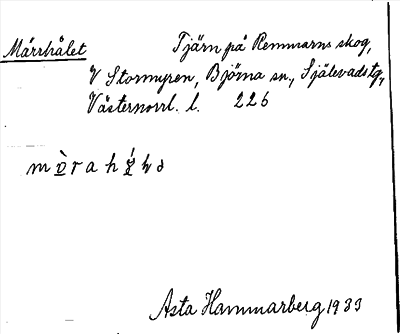 Mårrhålet Tjärn på Remmarns skog,
V Stormyren, Björna sn., Själevads tg,
Västernorrl. l. 226
Asta Hammarberg 1933